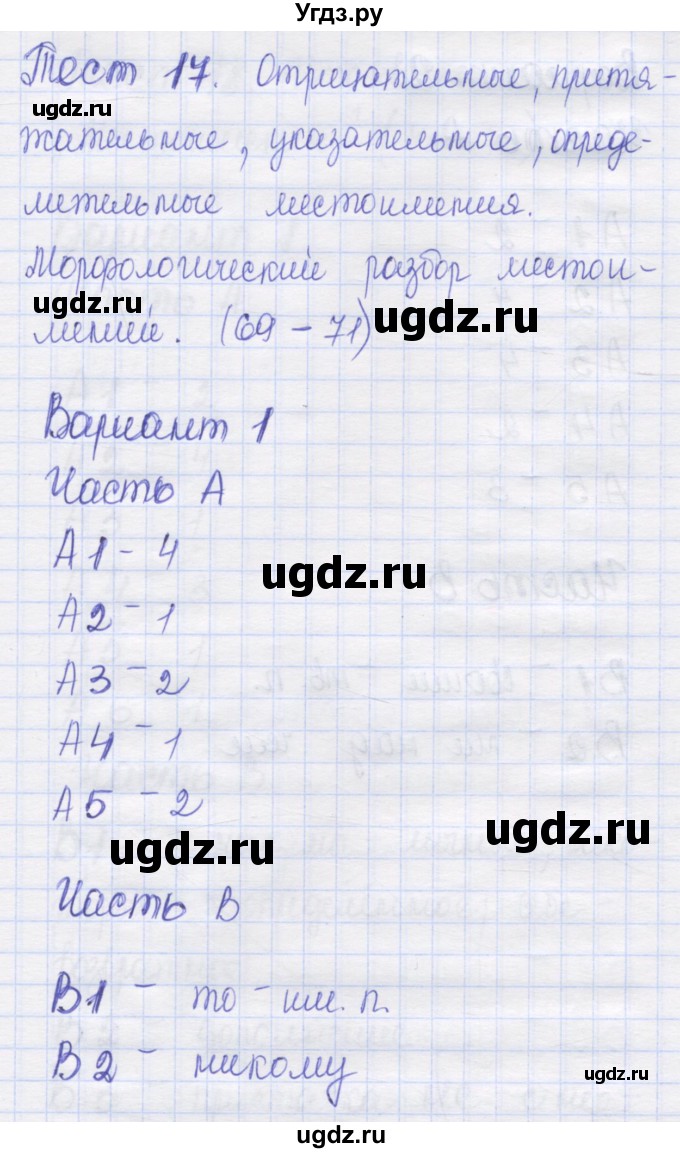 Угдз.ру
Тест 17. Отрицательные, притя-
ugdz.ru
жательные, указательные, опреде-
лительные местоимения.
Морфологический разбор местои-
ugdz.ru
мений. (69 - 71)
ugdz.ru
Вариант 1
Часть А
А1 - 4
ugdz.ru
А2 - 1
А3 - 2
А4 - 1
А5 - 2
ugdz.ru
ugdz.ru
Часть В
В1 - то - им. п.
В2 - никому
ugdz.ru
ugdz.ru